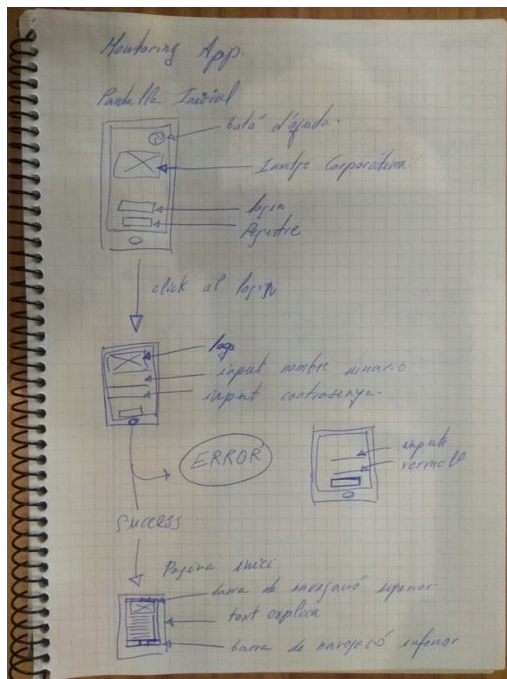 Monitoring App.
Pantalla Inicial
botó d'ajuda.
Imatge Corporativa
login
Registre
click al login
logo
input nombre usuario
input contrasenya.
ERROR
inputs
vermell
SUCCESS
Pagina inici
barra de navegació superior
text explica
barra de navegació inferior